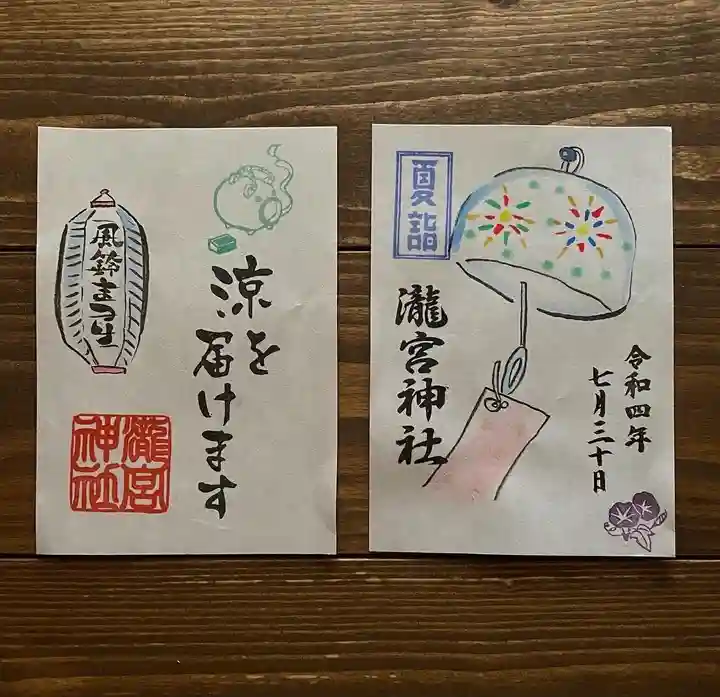 夏詣
瀧宮神社
令和四年
七月三十日
涼を
届けます
風鈴まつり
瀧宮
神社